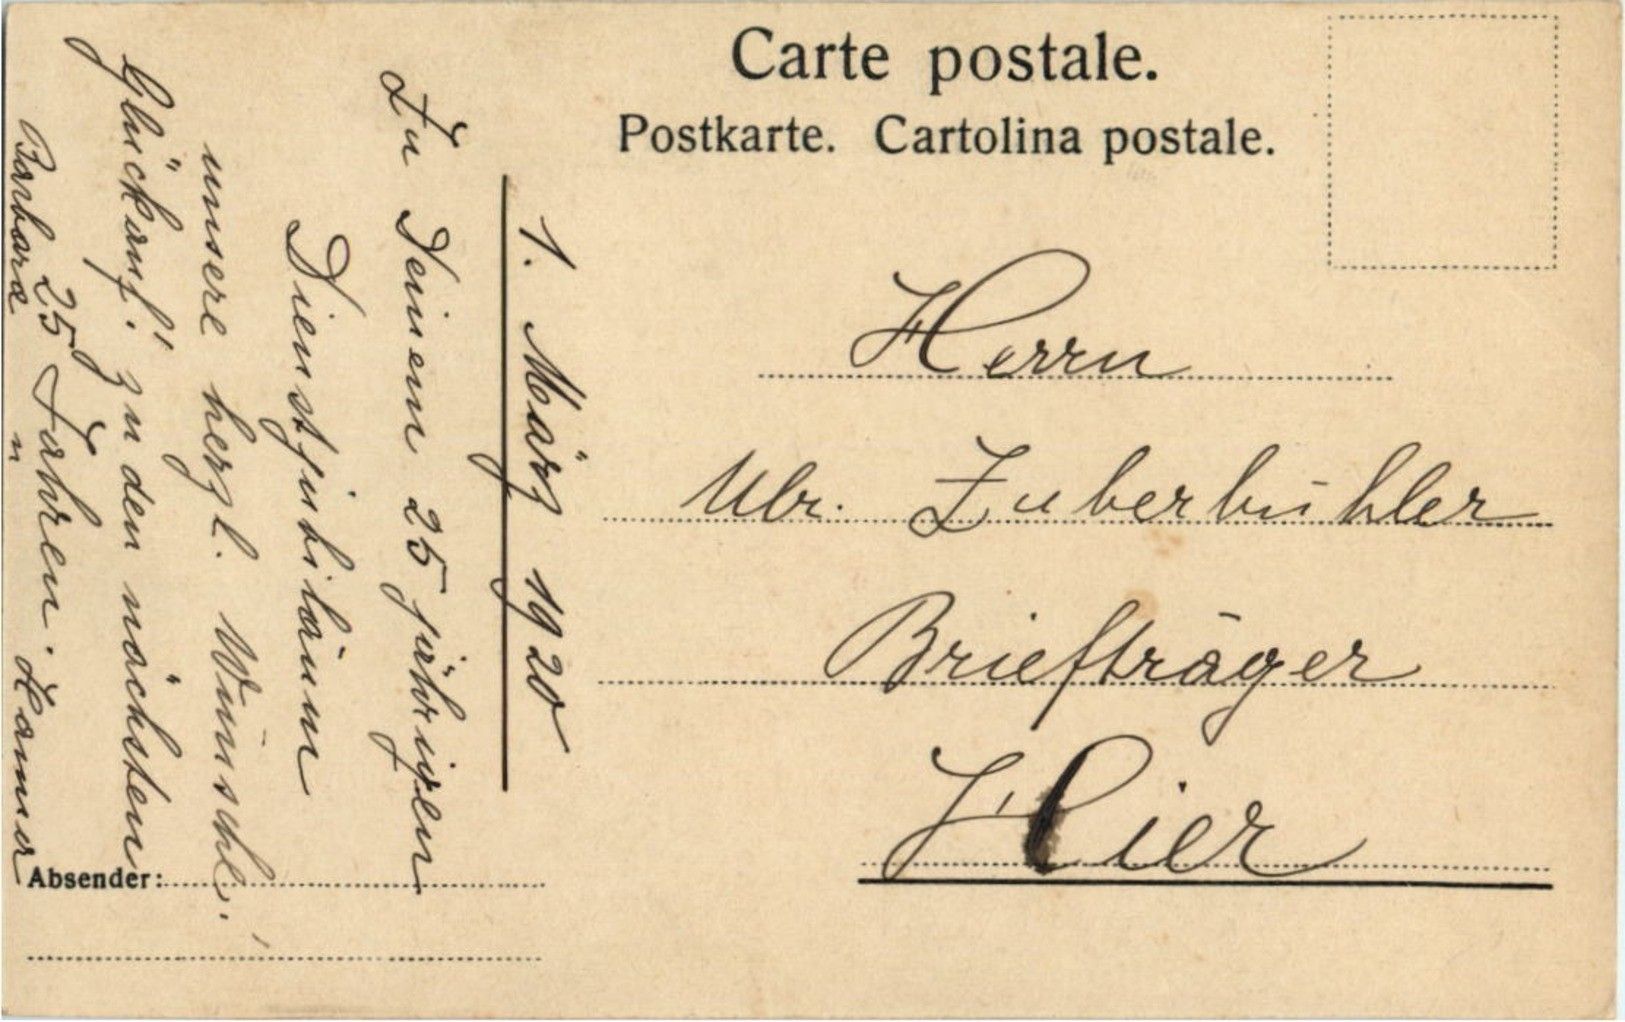 Carte postale.
Postkarte. Cartolina postale.
1. März 1920
Zu Deinem 25 jährigen
Dienstjubiläum
unsere herzl. Wünsche!
Glückauf! zu den nächsten
25 Jahren.
Barbara u
Absender:
Herrn
Ulr. Zuberbühler
Briefträger
Hier